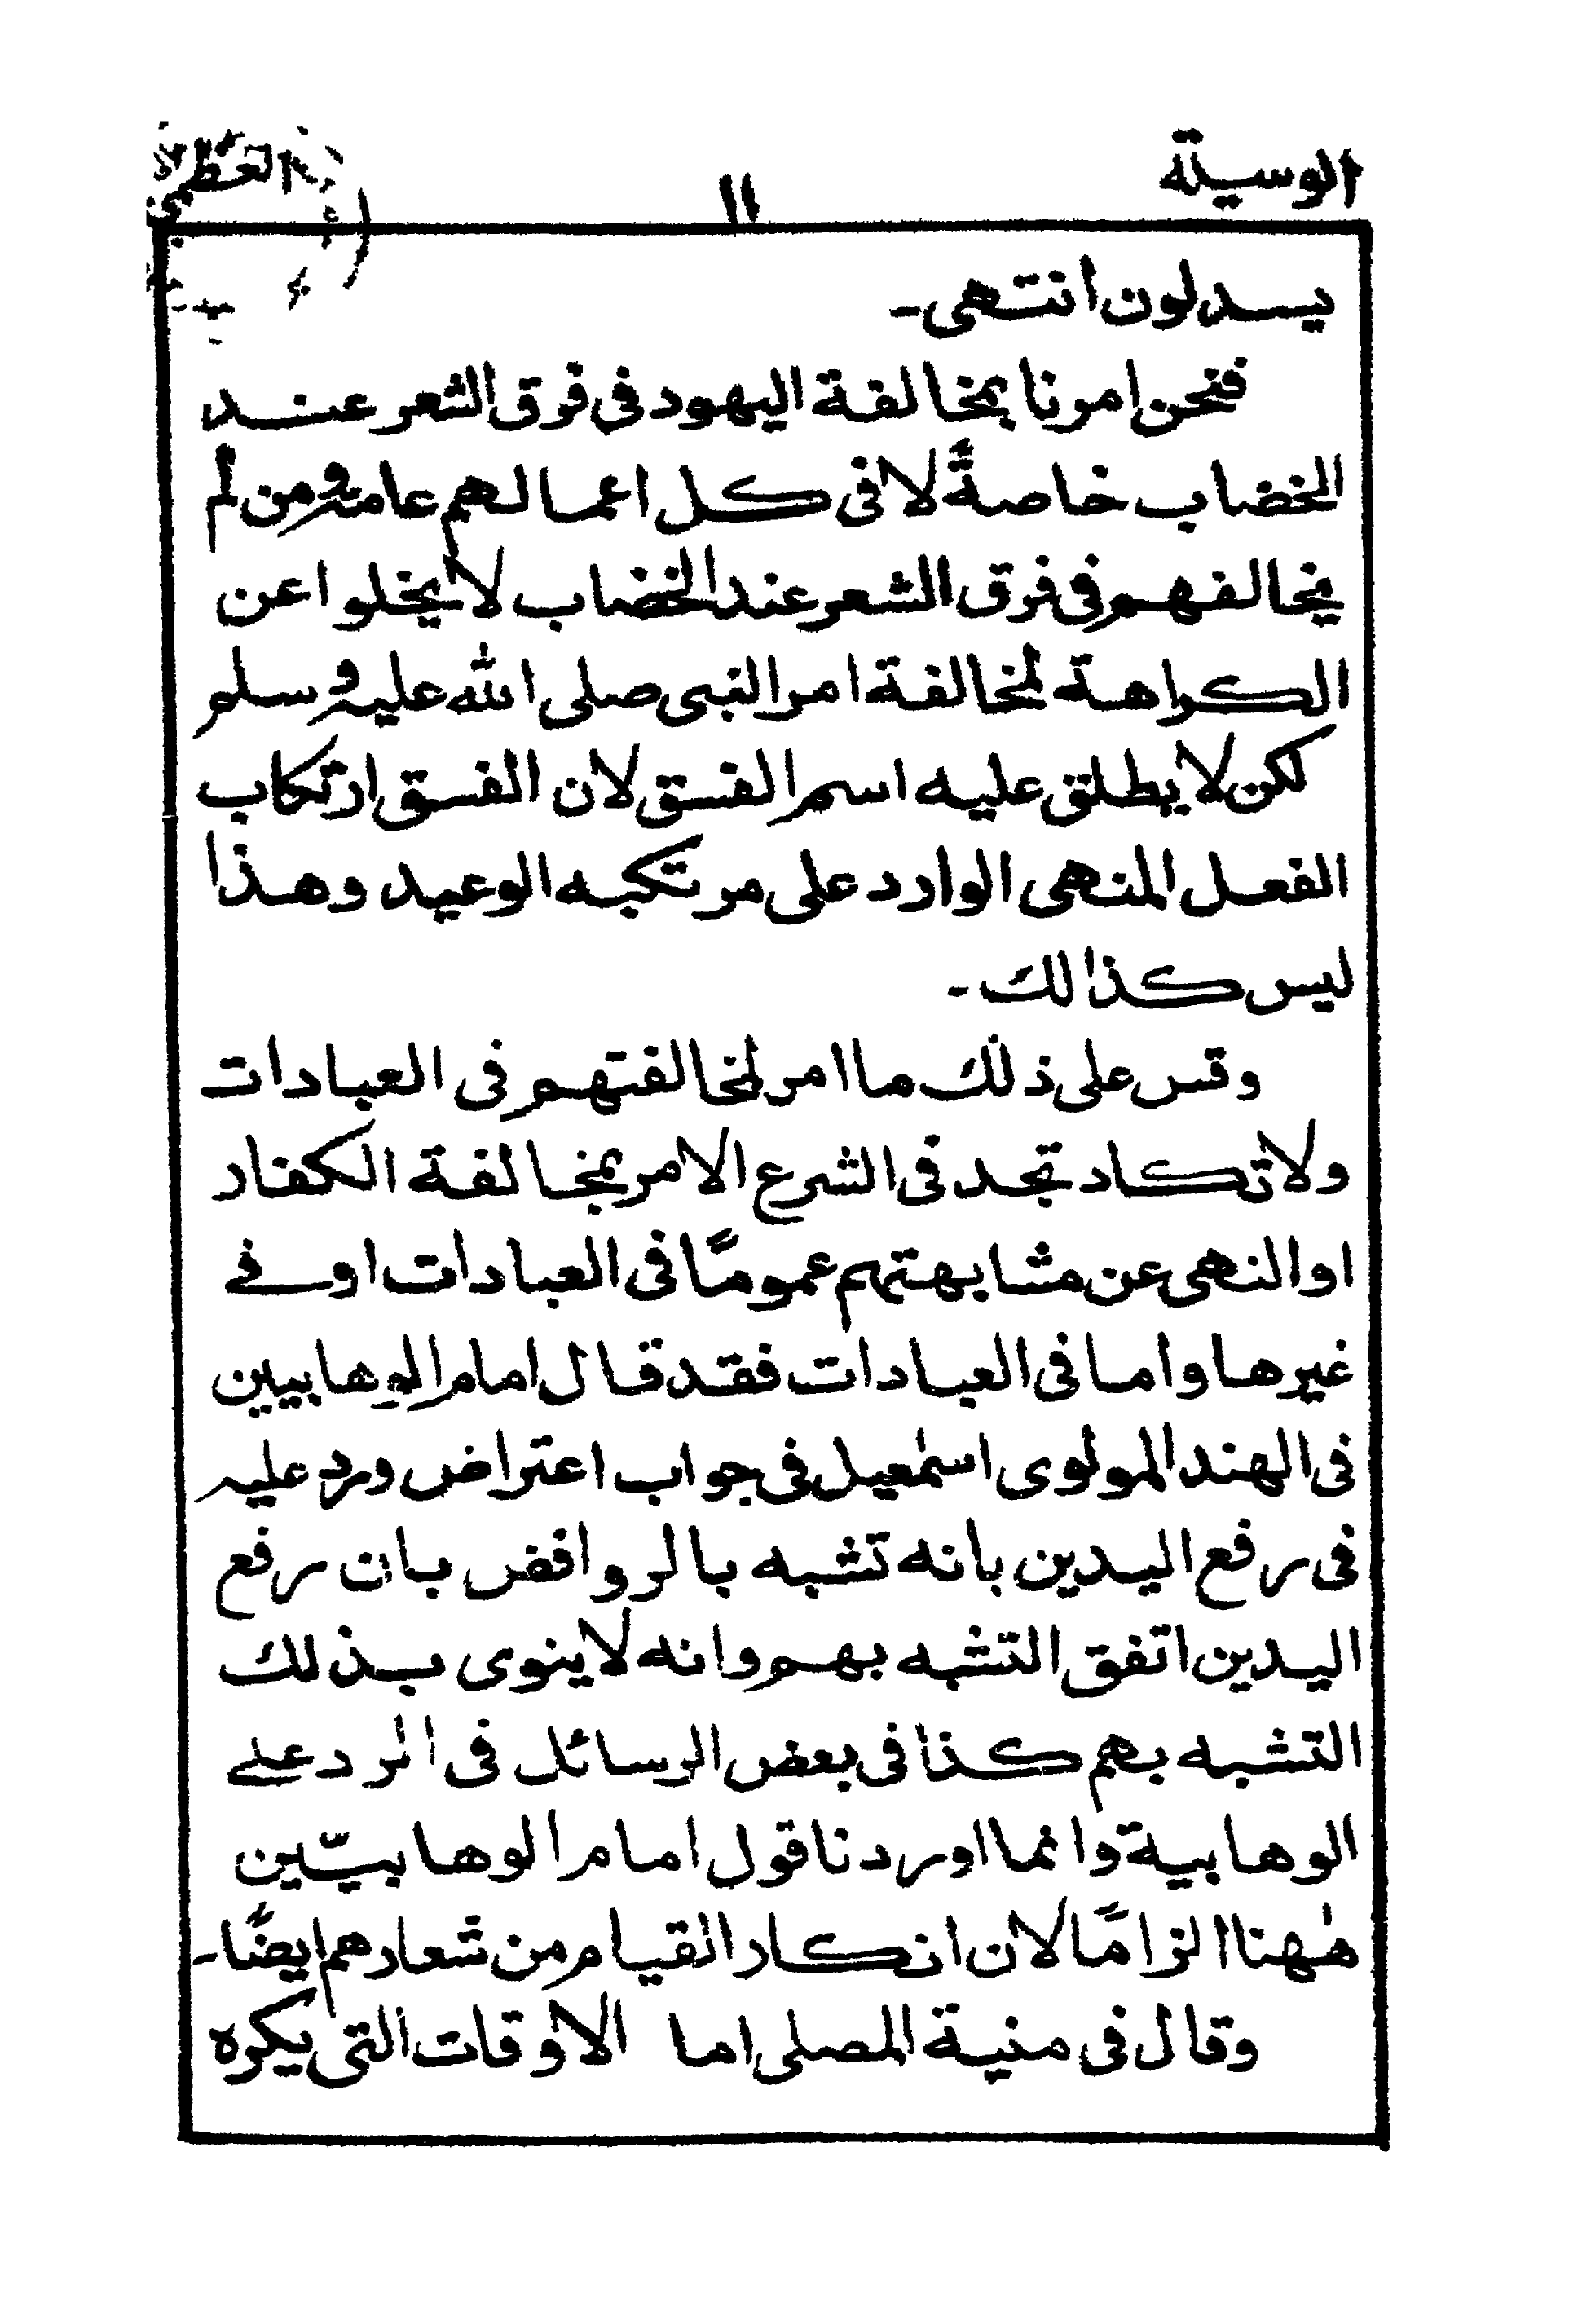 الوسيلة ١١ العظمى
يسدلون انتهى۔
فنحن امرنا بمخالفة اليهود فى فرق الشعر عند
الخضاب خاصةً لا فى كل اعمالهم عامة ومن لم
يخالفهم فى فرق الشعر عند الخضاب لا يخلوا عن
الكراهة لمخالفة امر النبى صلى الله عليه وسلم
لكن لا يطلق عليه اسم الفسق لان الفسق ارتكاب
الفعل المنهى الوارد على مرتكبه الوعيد وهذا
ليس كذالك۔
وقس على ذلك ما امر لمخالفتهم فى العبادات
ولا تكاد تجد فى الشرع الامر بمخالفة الكفار
او النهى عن مشابهتهم عمومًا فى العبادات او فے
غيرها واما فى العبادات فقد قال امام الوهابيين
فى الهند المولوى اسمٰعيل فى جواب اعتراض ورد عليه
فى رفع اليدين بانه تشبه بالروافض بان رفع
اليدين اتفق التشبه بهم وانه لا ينوى بذلك
التشبه بهم كذا فى بعض الرسائل فى الرد علے
الوهابية وانما اوردنا قول امام الوهابيّين
هٰهنا الزامًا لان انكار القيام من شعارهم ايضًا۔
وقال فى منية المصلى اما الاوقات التى يكره